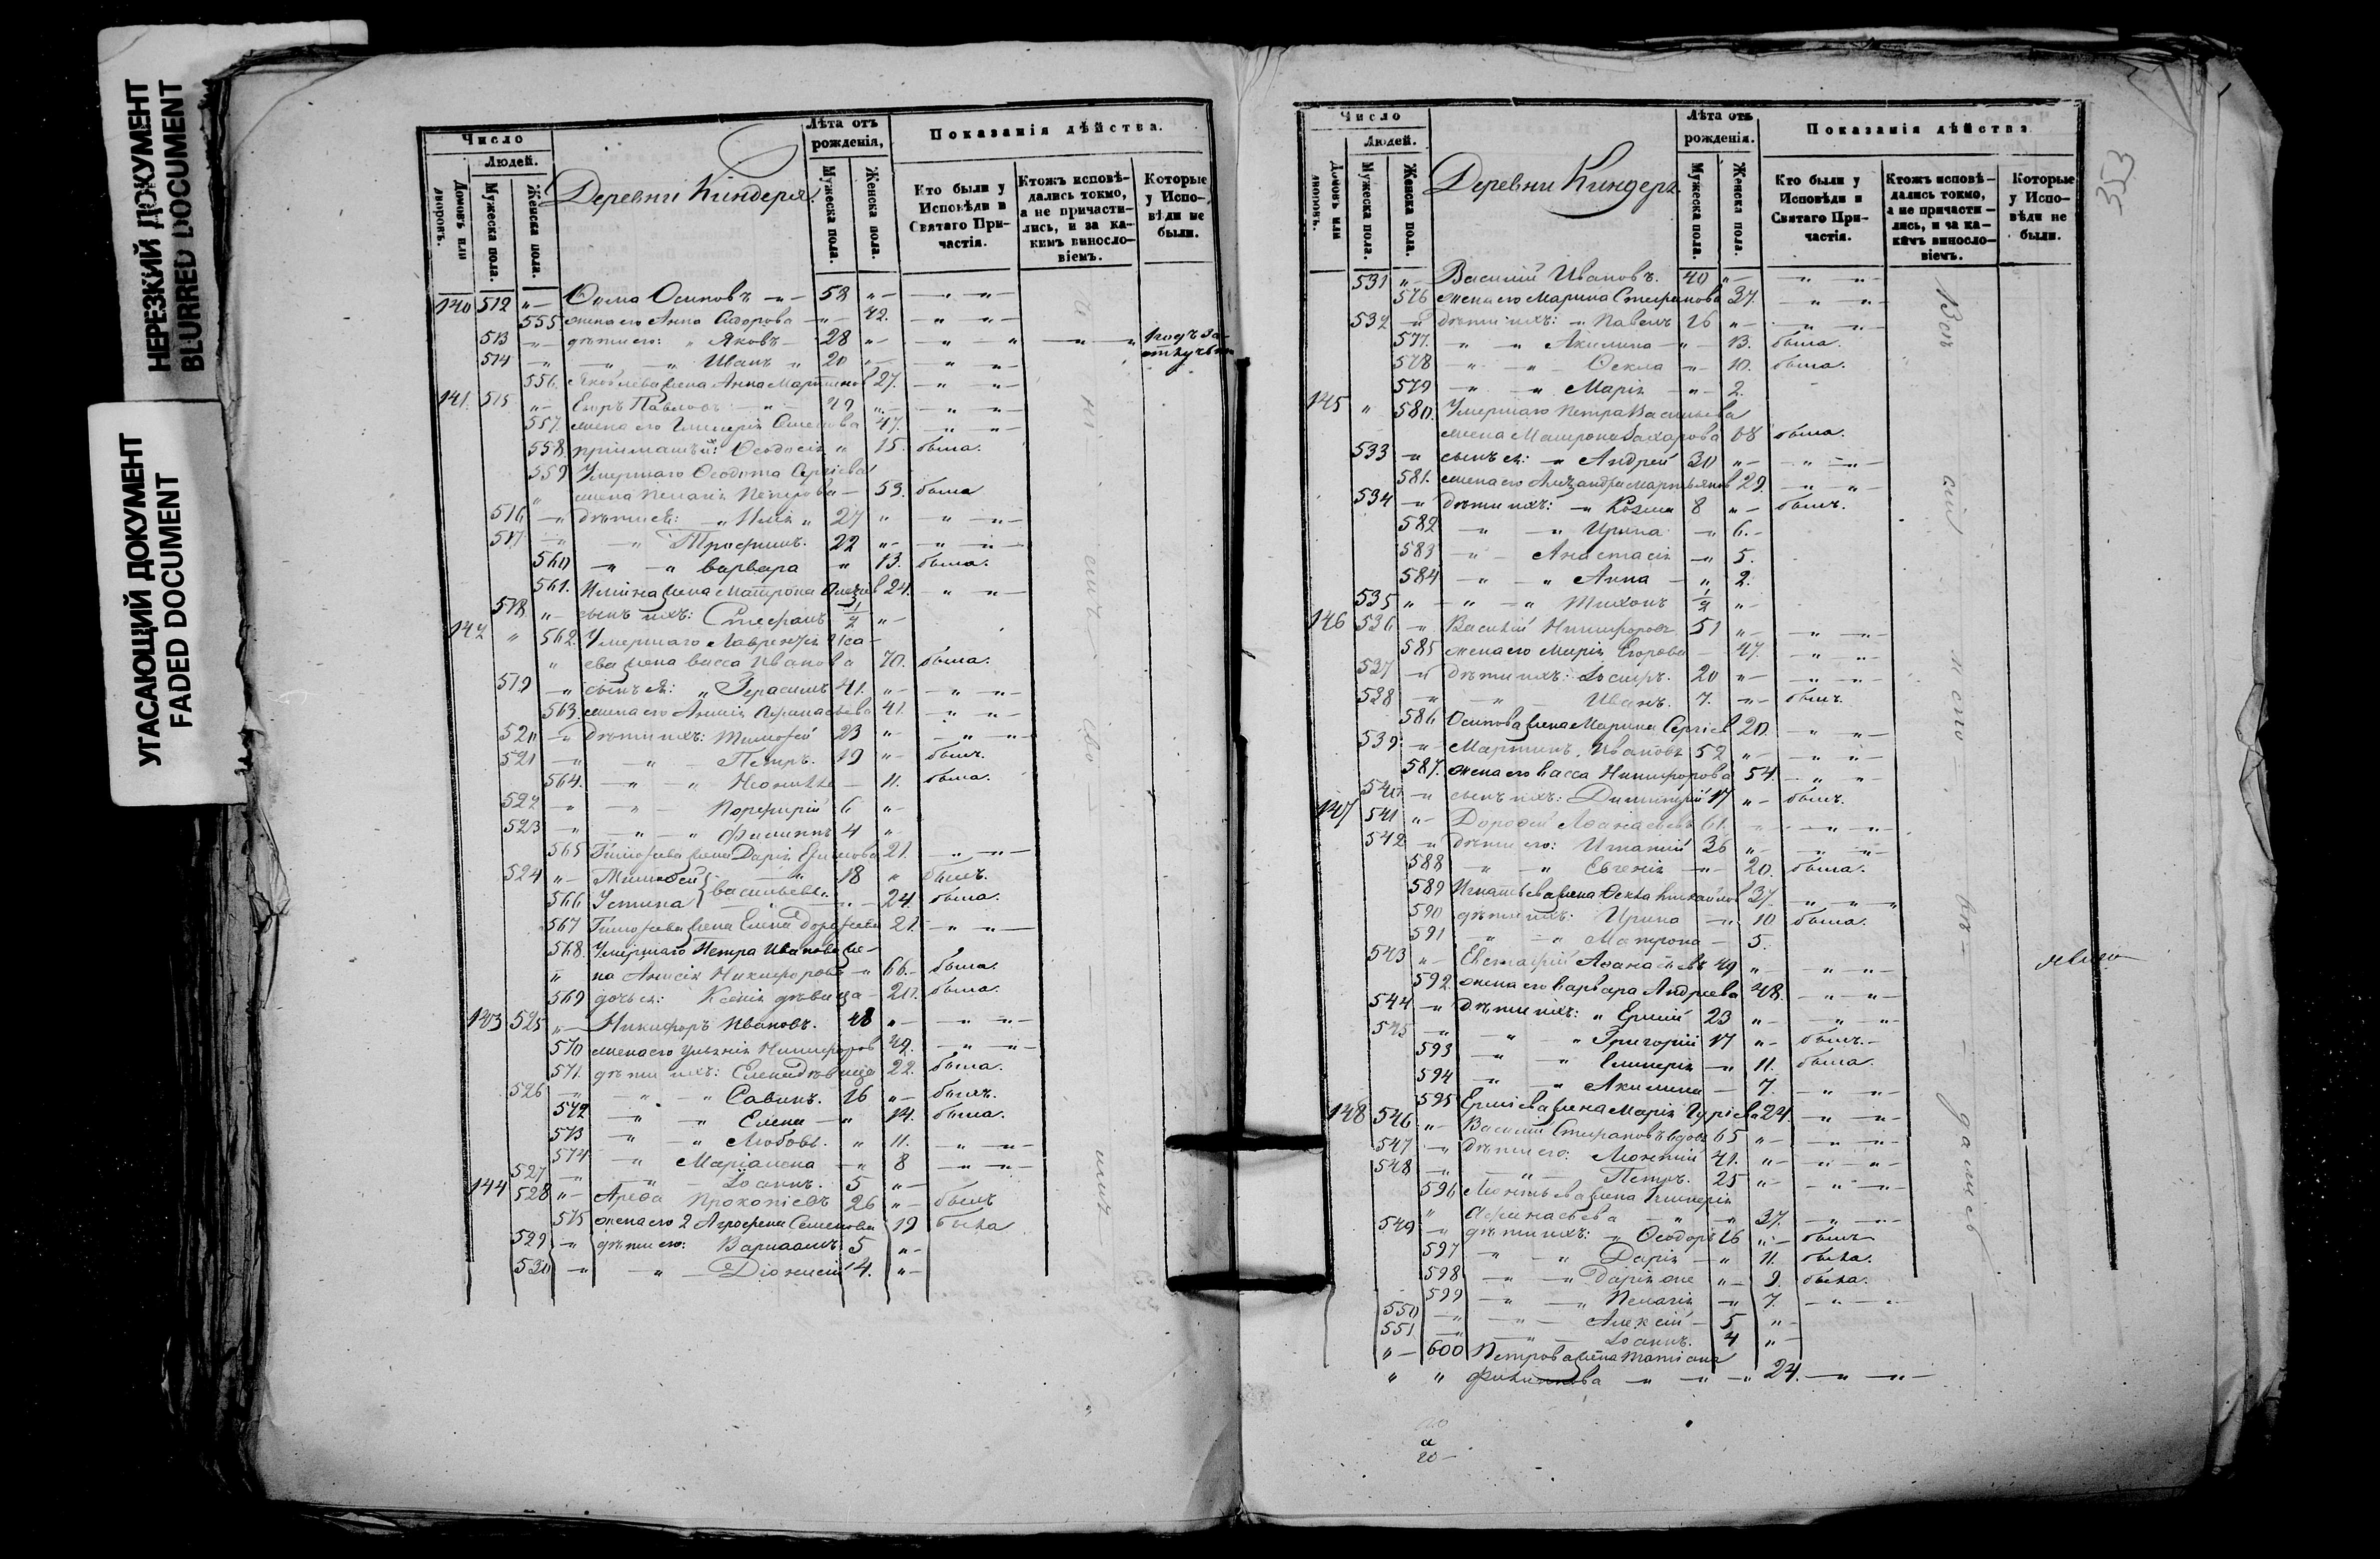 НЕРЕЗКИЙ ДОКУМЕНТ
BLURRED DOCUMENT
УГАСАЮЩИЙ ДОКУМЕНТ
FADED DOCUMENT
Число
Людей.
Домовъ или дворовъ.
Мужеска пола.
Женска пола.
Деревни Киндеря.
Лѣта отъ рожденія,
Мужеска пола.
Женска пола.
Показанія дѣйства.
Кто были у Исповѣди и Святаго Причастія.
Ктожъ исповѣдались токмо, а не причастились, и за какимъ винословіемъ.
Которые у Исповѣди не были.
140 512 "— Ѳома Осиповъ —"— 58 "— —"—"—
555 жена его Анна Сидорова —"— 42. —"—"—
513 —"— дѣти его: " Яковъ — 28 "—
514 —"— " Иванъ " 20 "—
556. Яковлева жена Анна 27. —"—"—
141. 515 "— Егоръ Павловъ —"— 49 "— —"—"—
557. жена его Гликерія 47. —"—"—
558. Ѳеодосія " 15. была.
559 Умершаго Ѳеодота Сергѣева
" жена Пелагія Петрова — 53. была
516 —"— дѣти ея: —"Илія " 27 " —"—"—
517 —"— —"Трофимъ. 22 "— —"—"—
560 —"—" Варвара " 13. была.
561. Иліина жена Матрона 24. —"—"—
518 "— сынъ ихъ: Стефанъ 1/2 "—
142 " 562. Умершаго Лаврентія Иса-
" ева жена Васса Иванова 70. была.
519 —"— сынъ ея: " Герасимъ 41. "— —"—"—
563. жена его Аѳанасьева 41. —"—"—
520 —"— дѣти ихъ: Тимоѳей 23 "— —"—"—
521 —"— —"— Петръ. 19 "— былъ.
564. —"—" Неонила — 11. была.
522 —"— —"— Порфирій 6 "—
523 —"— —"—" Филиппъ 4 "—
565 Тимоѳеева жена Дарія 21. —"—"—
524 "— Тимоѳей 18 " былъ.
566 Устина } Васильевы. —"— 24. была.
567 Тимоѳеева жена Елена 21. —"—"—
568. Умершаго Петра Иванова же-
" на Анисія Никифорова —" 66.— была.
569 дочь ея: Ксенія дѣвица — 20. была.
143 525 "— Никифоръ Ивановъ. 48 "— —"—"—
570 жена его 49. —"—"—
571. дѣти ихъ: Елена дѣвица 22. была.
526 —"— —"—" Савинъ. 16 "— былъ.
572 —"—" Елена —" 14. была.
573 —"—" Любовь. " 11. —"—"—
574 —"— Маріамна —" 8 —"—"—
527 —"— —"— Іоаннъ. 5 "—
144 528 "— Арефа Прокопіевъ 26 "— былъ
575 жена его 2 Агрофена Семенова 19 была
529 —"— дѣти его: Варлаамъ 5 "—
530 —"— —"— Діонисій 4. "—
353
Число
Людей.
Домовъ или дворовъ.
Мужеска пола.
Женска пола.
Деревни Киндеря
Лѣта отъ рожденія.
Мужеска пола.
Женска пола.
Показанія дѣйства
Кто были у Исповѣди и Святаго Причастія.
Ктожъ исповѣдались токмо, а не причастились, и за какимъ винословіемъ.
Которые у Исповѣди не были.
531 "— Василій Ивановъ. 40 "— —"—"—
576 жена его Марина Стефанова 37. —"—"—
532 —"— дѣти ихъ: " Павелъ 16 "— —"—"—
577. —"—" Акилина —"— 13. была.
578 —"—"— Ѳекла —"— 10. была.
579 —"—" Марія —"— 2.
145 " 580. Умершаго Петра Васильева
жена Матрона Захарова 68 была.
533 —"— сынъ ея: —" Андрей 30 "— —"—"—
581. жена его 29. —"—"—
534 —"— дѣти ихъ: —" Козма 8 "— былъ.
582 —"—" Ирина —" 6.—
583 —"— Анастасія —" 5.
584 —"—" Анна —" 2.
535 "— —"—" Тихонъ 1/2 "—
146 536 —"— Василій Никифоровъ 51 "— —"—"—
585 жена его Марія Егорова — 47. —"—"—
537 —"— дѣти ихъ: Іосифъ. 20 "— —"—"—
538 —"— —"— Иванъ. 7. —"— былъ.
586 Осипова жена Марина Сергіев 20. —"—"—
539 —"— Мартинъ. Ивановъ 52 "— —"—"—
587. жена его Васса Никифорова 54. —"—"—
540 —"— сынъ ихъ: Димитрій 17 "— былъ.
147 541 "— Дороѳей Аѳанасьевъ 61. —"—"—
542 —"— дѣти его: Игнатій 36 "— —"—"—
588 —"—" Евгенія —"— 20. была.
589 Игнатьева жена Ѳекла 37. —"—"—
590 дѣти ихъ: Ирина —"— 10 была.
591 —"—" Матрона — 5.
543 "— Евстафій Аѳанасьевъ 49 "— —"—"—
592. жена его Варвара Андреева 48. —"—"—
544 —"— дѣти ихъ: " Ермій 23 "— —"—"—
545 —"— —"—" Григорій 17 "— былъ.—
593 —"—" Гликерія —" 11. была.
594 —"—" Акилина — 7. —"—"—
595 Ерміева жена Марія 24. —"—"—
148 546 "— Василій Стефановъ вдовъ 65 "— —"—"—
547 —"— дѣти его: 41. "— —"—"—
548 —"— —"— Петръ. 25 "— —"—"—
596 жена Гликерія
" Аѳанасьева —"— 37. —"—"—
549 —"— дѣти ихъ: " Ѳеодоръ 16 "— былъ
597 —"—" Дарія —" 11. была.
598 —"—" Дарія " 9. была.
599 —"—" Пелагія —" 7. —"—"
550 —"— —"— Алексій — 5 "—
551 —"— —"— Іоаннъ. 4 "—
"— 600 Петрова жена Татіана
" " Филиппова —"—" 24. —"—"—